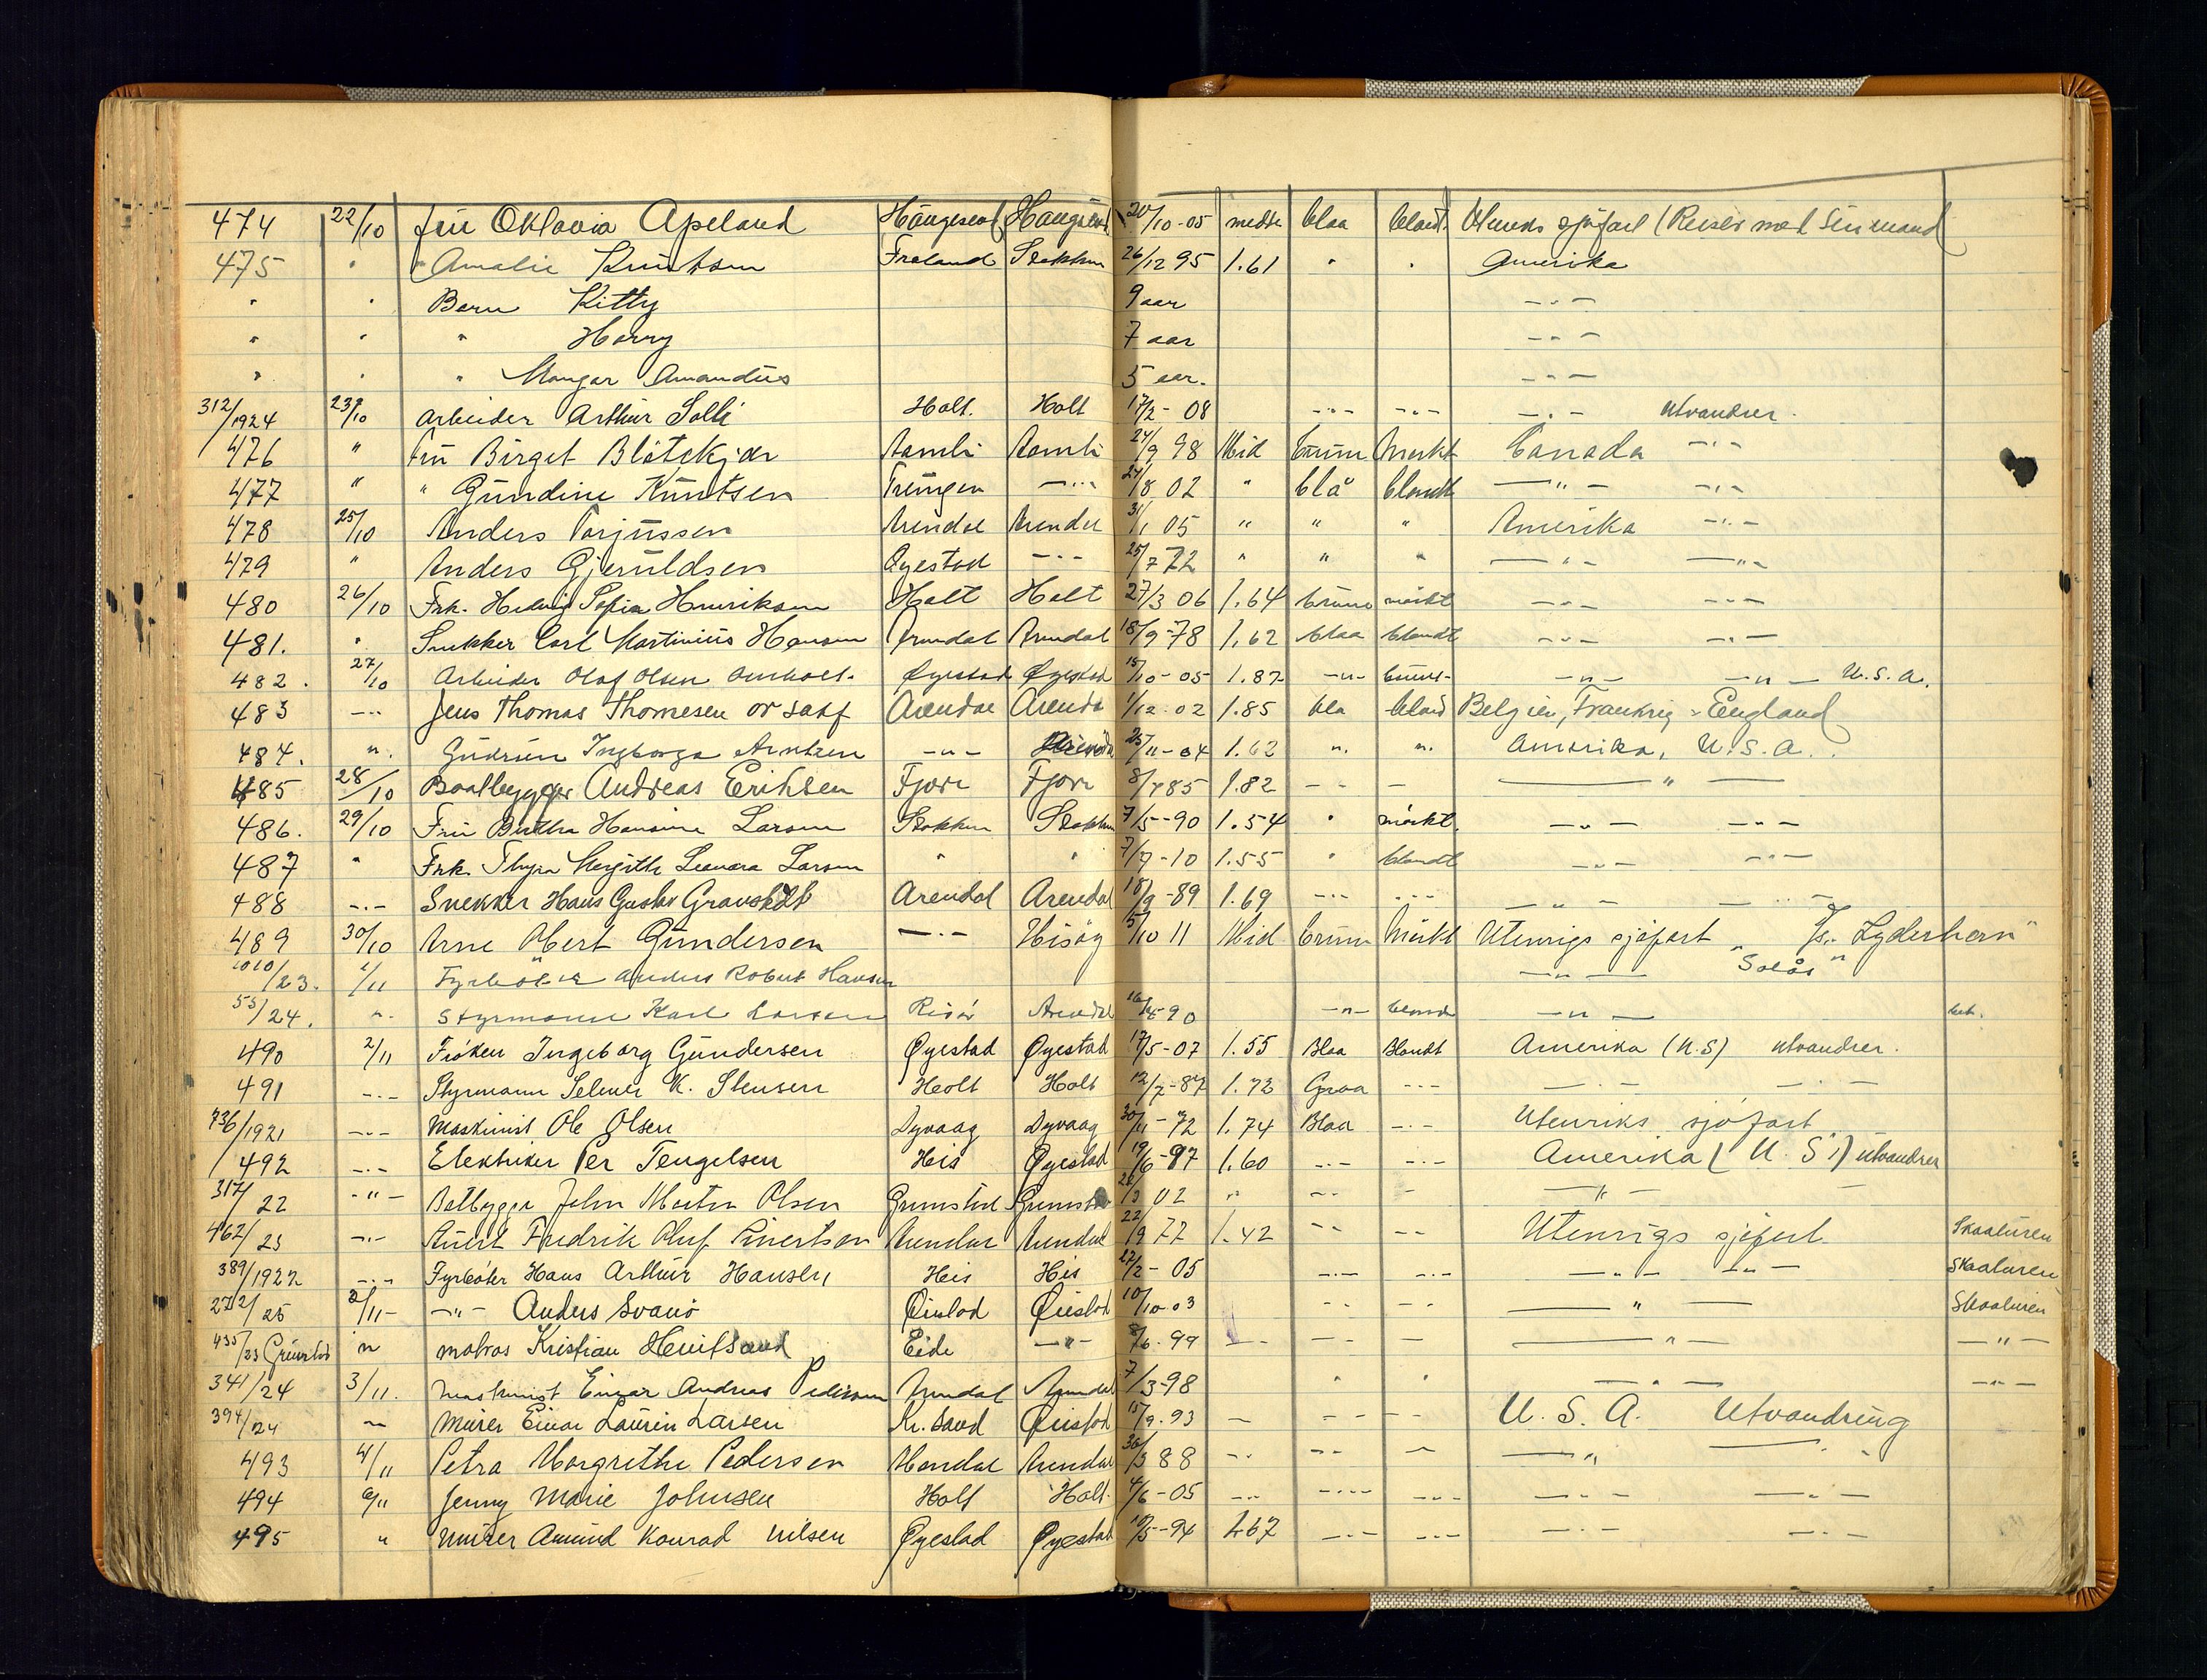 474 22/10 Fru Oktavia Apeland Haugesund Haugesund 20/10-05 medde blaa blond. Utenriks sjöfart (Reiser med sin mand
475 " " Amalie Knutsen Froland Stokken 26/12 95 1.61 " " Amerika
" " Barn Kitty 9 aar —"—
" " " Harry 7 aar —"—
" " " Amandus 5 aar. —"—
312/1924 23/10 Arbeider Arthur Solli Holt. Holt 17/2-08 —"— —"— —"— utvandrer.
476 " Fru Birget Blötekjær Aamli Aamli 24/9 98 Mid brune Mörkt Canada —"—
477 " " Gundine Knutsen Treungen —"— 21/8 02 " blå blondt —"— —"—
478 25/10 Anders Torjussen Arendal Arendal 31/1 05 " " " Amerika —"—
479 " Anders Gjeruldsen Øyestad —"— 25/7 72 " " " —"— —"—
480 26/10 Frk. Hedvig Sofia Henriksen Holt Holt 27/3 06 1.64 brune mörkt —"— —"—
481. " Snekker Carl Martinius Hansen Arendal Arendal 18/9-78 1.62 blaa blondt —"— —"—
482. 27/10 Arbeider Olaf Olsen Omholt. Øyestad Øyestad 15/10-05 1.87 —"— brunt- —"— —"— U.S.A.
483 —"— Jens Thomas Thomesen Arendal Arendal 1/12-02 1.85 bla blond Belgien, Frankrig - England
484. ". Gudrun Ingeborga Arntzen —"— Arendal 25/11-04 1.62 ". ". Amerika, U.S.A.
485 28/10 Baatbygger Andreas Eriksen Fjære Fjære 8/7 85 1.82 — — — —"—
486. 29/10 Fru Bertha Hansine Larsen Stokken Stokken 7/5-90 1.54 " mörkt. —"— —"—
487 " Frk. Thyra Margithe Leonora Larsen " " 7/7-10 1.55 " blondt —"— —"—
488 —"— Snekker Hans Gustav Gravstedt Arendal Arendal 18/9-89 1.69 —"— —"— —"— —"—
489 30/10 Arne Obert Gundersen —"— Hisöy /10 11 Mid brune Mörkt Utenrigs sjøfart „ T/s. Lyderhorn"
1010/23. 1/11 Fyrböter Anders Robert Hansen —"— "Solås"
55/24. ". Styrmann Karl Larsen Risör Arendal 90 —"— blonde —"—
490 2/11 Fröken Ingeborg Gundersen Øyestad Øyestad 17/5-07 1.55 Blaa Blondt Amerika (U.S) utvandrer.
491 —"— Styrmann Selmer K. Stensen Holt Holt 12/7-87 1.72 Graa —"— —"— —"—
736/1921 —"— Maskinist Ole Olsen Dyvaag Dyvaag 30/11-72 1.74 Blaa —"— Utenriks sjöfart
492 —"— Elektriker Per Tengelsen His Øyestad 19/6-97 1.60 —"— —"— Amerika (U.S.) utvandrer
317/22 —"— Batbygger John Martin Olsen Grimstad Grimstad /3 02 " —"— — —"—
462/23 —"— Fredrik Oluf Arendal Arendal 22/9 77 1.42 —"— —"— Utenrigs sjøfart Skaaturen
389/1922 —"— Fyrböter Hans Arthur Hansen His His 27/2-05 —"— —"— —"— —"— Skaaturen
272/25 2/11- —"— Anders Svanö Öiestad Öiestad 10/10-03 —"— —"— —"— Skaaturen
435/23 Grimstad " matros Kristian Eide —"— 8/6-99 — —"— —"— —"— —"—
341/24 3/11. Maskinist Einar Andreas Pedersen Arendal Arendal 7/3-98 " " —"— —"—
394/24 " Murer Einar Laurin Larsen Kr.sand Öiestad 15/9-93 — —"— —"— U.S.A. Utvandring
493 4/11 Petra Margrethe Pedersen Arendal 30/3 88 —"— —"— — —"— —"—
494 6/11 Jenny Marie Johnsen Holt Holt 4/6-05 —"— —"— —"— —"— —"—
495 " Murer Amund Konrad Nilsen Øyestad Øyestad 10/5-94 1.67 —"— —"— —"— —"—